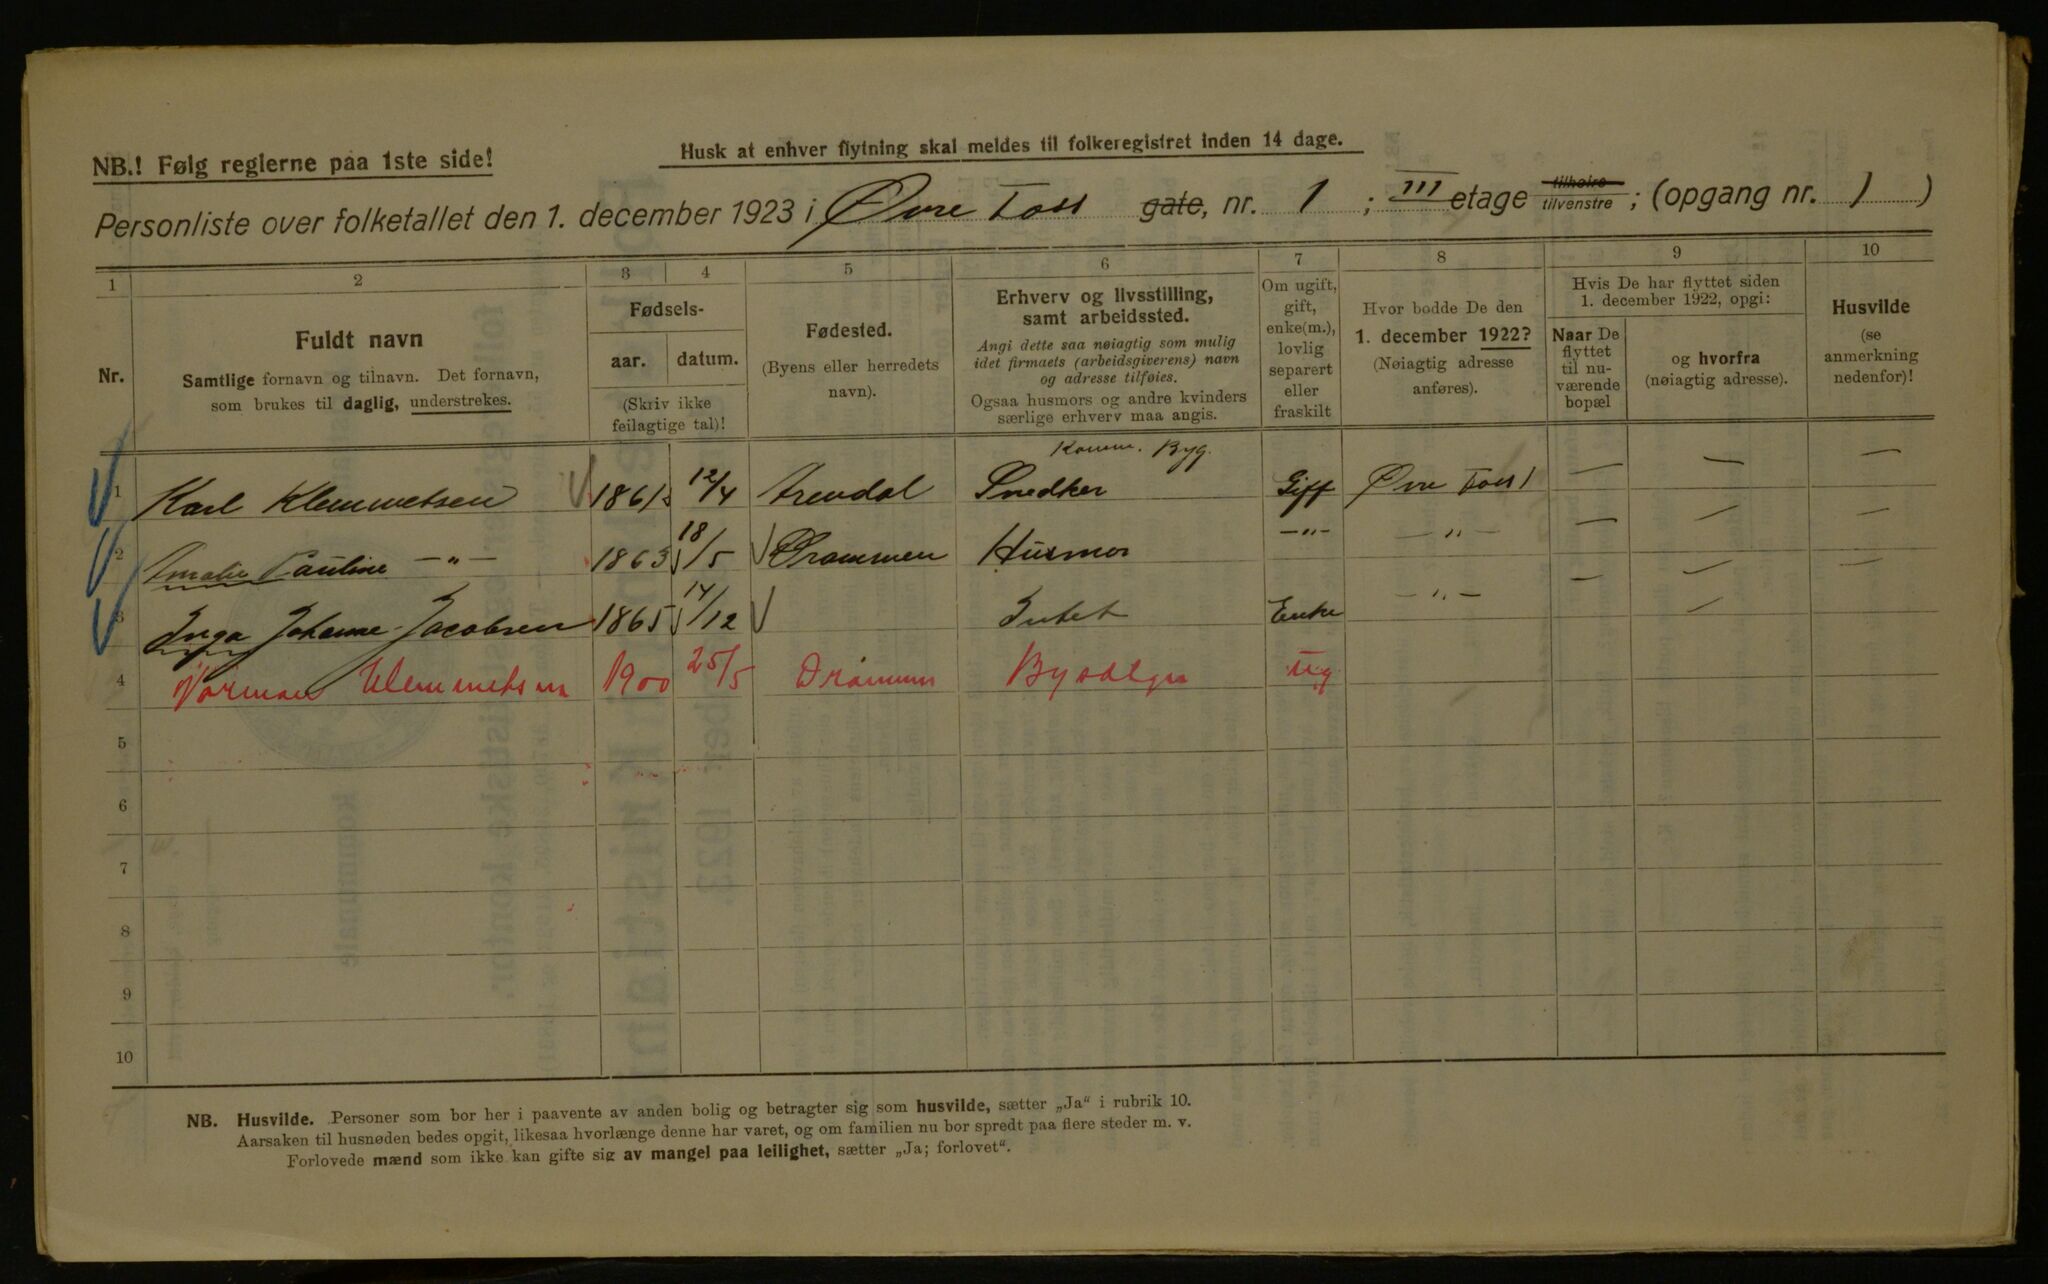 NB.! Følg reglerne paa 1ste side!
Husk at enhver flytning skal meldes til folkeregistret inden 14 dage.
Personliste over folketallet den 1. december 1923 i Øvre Foss gate, nr. 1 ; III etage tilhøire tilvenstre ; (opgang nr. 1 )
1 2 3 4 5 6 7 8 9 10
Nr.
Fuldt navn
Samtlige fornavn og tilnavn. Det fornavn,
som brukes til daglig, understrekes.
Fødsels-
aar. datum.
(Skriv ikke
feilagtige tal)!
Fødested.
(Byens eller herredets
navn).
Erhverv og livsstilling,
samt arbeidssted.
Angi dette saa nøiagtig som mulig
idet firmaets (arbeidsgiverens) navn
og adresse tilføies.
Ogsaa husmors og andre kvinders
særlige erhverv maa angis.
Om ugift,
gift,
enke(m.),
lovlig
separert
eller
fraskilt
Hvor bodde De den
1. december 1922?
(Nøiagtig adresse
anføres).
Hvis De har flyttet siden
1. december 1922, opgi:
Naar De
flyttet
til nu-
værende
bopæl
og hvorfra
(nøiagtig adresse).
Husvilde
(se
anmerkning
nedenfor)!
Komm. Byg.
1 Karl Klemmetsen 1861 12/4 Arendal Snedker Gift Øvre Foss 1 — — —
2 Amalie Pauline —"— 1863 18/5 Drammen Husmor —"— —"— — — —
3 Inga Johanne Jacobsen 1865 14/12 Intet Enke —"— — — —
4 Norman Klemmetsen 1900 25/5 Drammen Ug
5
6
7
8
9
10
NB. Husvilde. Personer som bor her i paavente av anden bolig og betragter sig som husvilde, sætter „Ja" i rubrik 10.
Aarsaken til husnøden bedes opgit, likesaa hvorlænge denne har varet, og om familien nu bor spredt paa flere steder m. v.
Forlovede mænd som ikke kan gifte sig av mangel paa leilighet, sætter „Ja; forlovet".